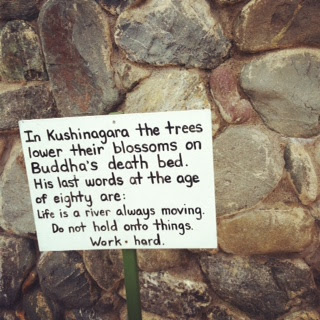 In Kushinagara the trees
lower their blossoms on
Buddha's death bed.
His last words at the age
of eighty are:
Life is a river always moving.
Do not hold onto things.
Work • hard.